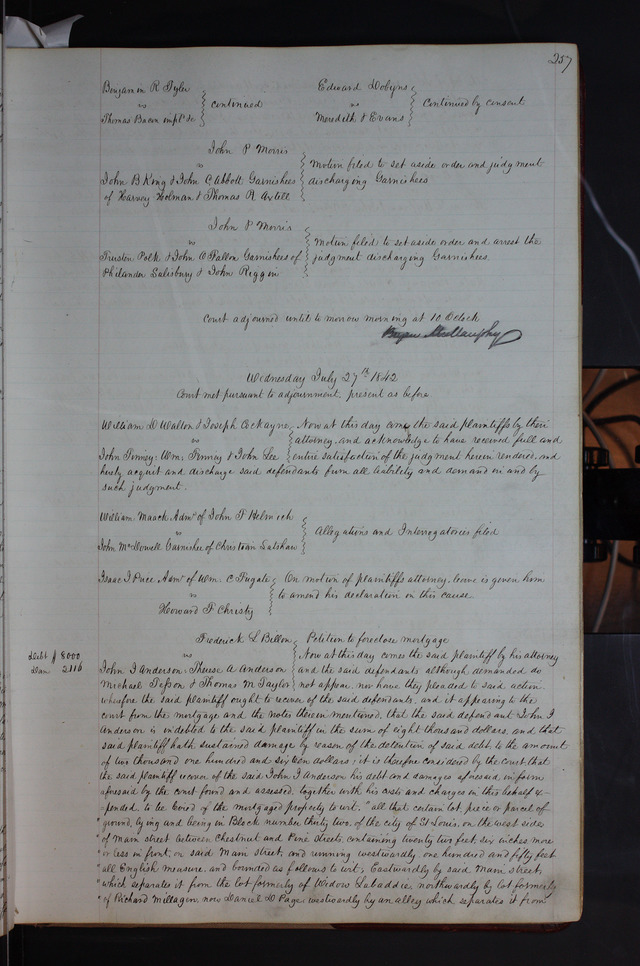 257
Benjamin R Tyler
vs
Thomas Bacon impl'd &c
continued
Edward Dobyns
vs
Meredith & Evans
Continued by consent
John P Morris
vs
John B King & John C Abbott Garnishees
of Harvey Hedman & Thomas R Axtell
Motion filed to set aside order and judgment
discharging Garnishees
John P Morris
vs
Trusten Polk & John O'Fallon Garnishees of
Philander Salisbury & John Riggin
Motion filed to set aside order and arrest the
judgment discharging Garnishees.
Court adjourned until to morrow morning at 10 Oclock
Wednesday July 27th 1842
Court met pursuant to adjournment, present as before
William D Walton & Joseph C
vs
John Finney, Wm. Finney & John Lee
Now at this day come the said plaintiffs by their
attorney, and acknowledge to have received full and
entire satisfaction of the judgment herein rendered, and
hereby acquit and discharge said defendants from all liability and demand on and by
such judgment.
William Maack Adm'r of John F Helmich
vs
John McDowell Garnishee of Christian Latshaw
Allegations and Interrogatories filed
Isaac J Pace Adm'r of Wm. C. Fugate
vs
Howard F Christy
On motion of plaintiffs attorney, leave is given him
to amend his declaration in this cause.
Debt $8000
Dam 2116
Frederick L Billon
vs
John J Anderson, Therese A Anderson
Michael Tesson & Thomas M Taylor
Petition to foreclose mortgage
Now at this day comes the said plaintiff by his attorney
and the said defendants although demanded do
not appear, nor have they pleaded to said action
wherefore the said plaintiff ought to recover of the said defendants, and it appearing to the
court from the mortgage and the notes therein mentioned, that the said defendant John J
Anderson is indebted to the said plaintiff in the sum of eight thousand dollars, and that
said plaintiff hath sustained damage by reason of the detention of said debt, to the amount
of two thousand one hundred and sixteen dollars; it is therefore considered by the Court that
the said plaintiff recover of the said John J Anderson his debt and damages aforesaid in form
aforesaid by the court found and assessed, together with his costs and charges in this behalf ex-
pended, to be levied of the mortgaged property to wit, "all that certain lot, piece or parcel of
"ground, lying and being in Block number thirty two, of the city of St Louis, on the west side
"of Main street between Chestnut and Pine streets, containing twenty two feet, six inches more
"or less in front, on said Main street, and running westwardly one hundred and fifty feet
"all English measure, and bounded as follows to wit; Eastwardly by said Main street,
"which separates it from the lot formerly of Widow Labaddie, northwardly by lot formerly
"of Richard Milligan, now Daniel D Page, westwardly by an alley which separates it from